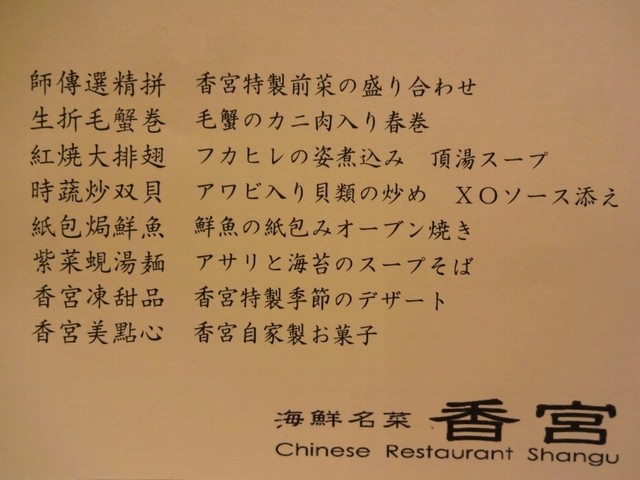 師傳選精拼 香宮特製前菜の盛り合わせ
生折毛蟹巻 毛蟹のカニ肉入り春巻
紅焼大排翅 フカヒレの姿煮込み 頂湯スープ
時蔬炒双貝 アワビ入り貝類の炒め XOソース添え
紙包焗鮮魚 鮮魚の紙包みオーブン焼き
紫菜蜆湯麺 アサリと海苔のスープそば
香宮凍甜品 香宮特製季節のデザート
香宮美點心 香宮自家製お菓子
海鮮名菜 香宮
Chinese Restaurant Shangu